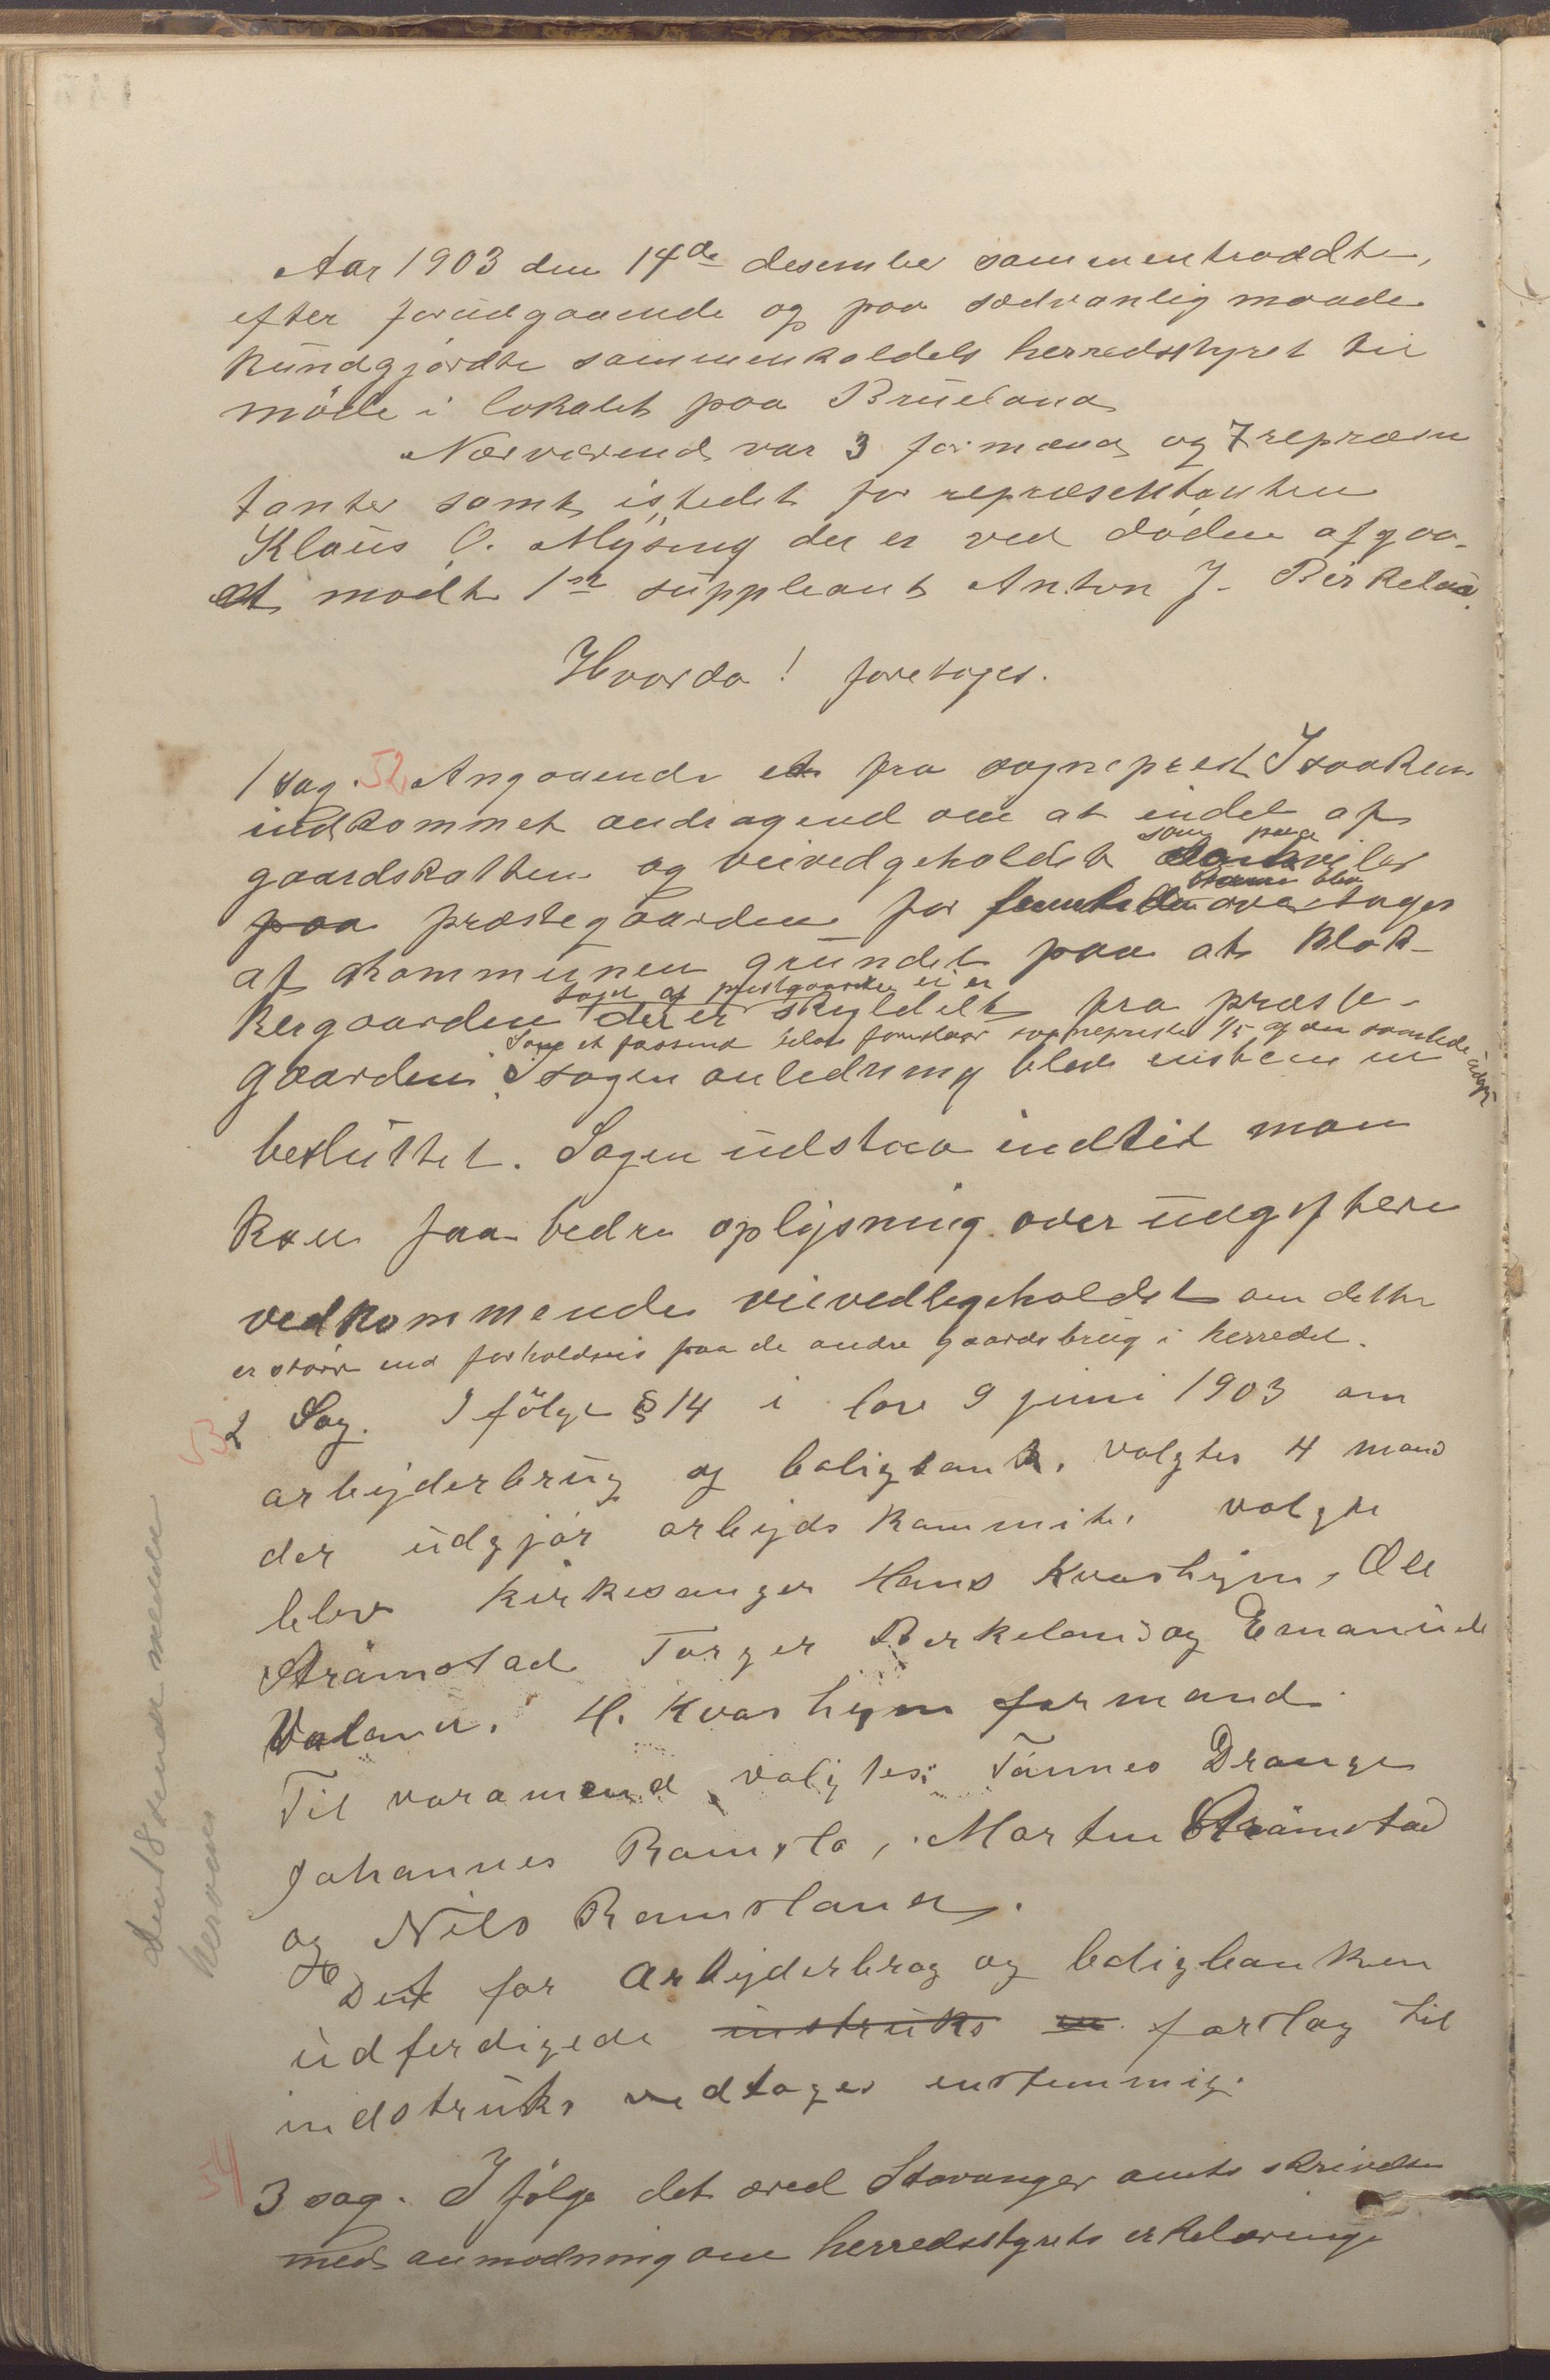 Aar 1903 den 14de desember sammentraadte,
efter forudgaaende og paa sædvanlig maade
kundgjordte sammenkaldels herredsstyret til
møde i lokalet paa Brueland
Nærværend var 3 formænd og 7 repræsen
tanter samt istedet for repræsentanten
Klaus O. Mysing der er ved døden afgaa-
et mødte 1ste suppleant Anton J. Birkeland.
Hvorda! foretoges.
1 sag. 52 Angaaende et fra sogneprest Isaaksen
indkommet andragend om at endel af
som paa
gaardskatten og veivedgeholdet hviler
paa præstegaarden for overtages
af kommunen grundet paa at Klok-
kergaarden der er skyldelt fra præste-
Som et passend beløb foreslaar sognepresten 1/5 af den samlede udgift
gaarden. I sagen anledning blev enstemm
besluttet. Sagen udstaa indtil man
kan faa bedre oplysning over udgiftern
vedkommende veivedligeholdet om dette
er større end forholdsvis paa de andre gaardsbrug i herredet.
53 2 Sag. I følge § 14 i lov 9 juni 1903 om
arbejderbrug og boligbank, valgtes 4 mænd
der udgjør arbejds kommite, valgte
blev kirkesanger Hans Kvashejm, Ole
Strømstad Torger Birkeland og Emanuel
Valand. H. Kvashejm formand.
Til varamænd valgtes: Tønnes Drange
Johannes Ramsla, Morten Strømstad
og Nils Ramsland.
Det for Arbejderbrug og boligbanken
udferdigede instruks forslag til
indstruks vedtages enstemmig.
54 3 sag. I følge det æred Stavanger amts skrivelse
med anmodning om herredsstyrets erklæring
Den 18 sendt meddelelse
herom